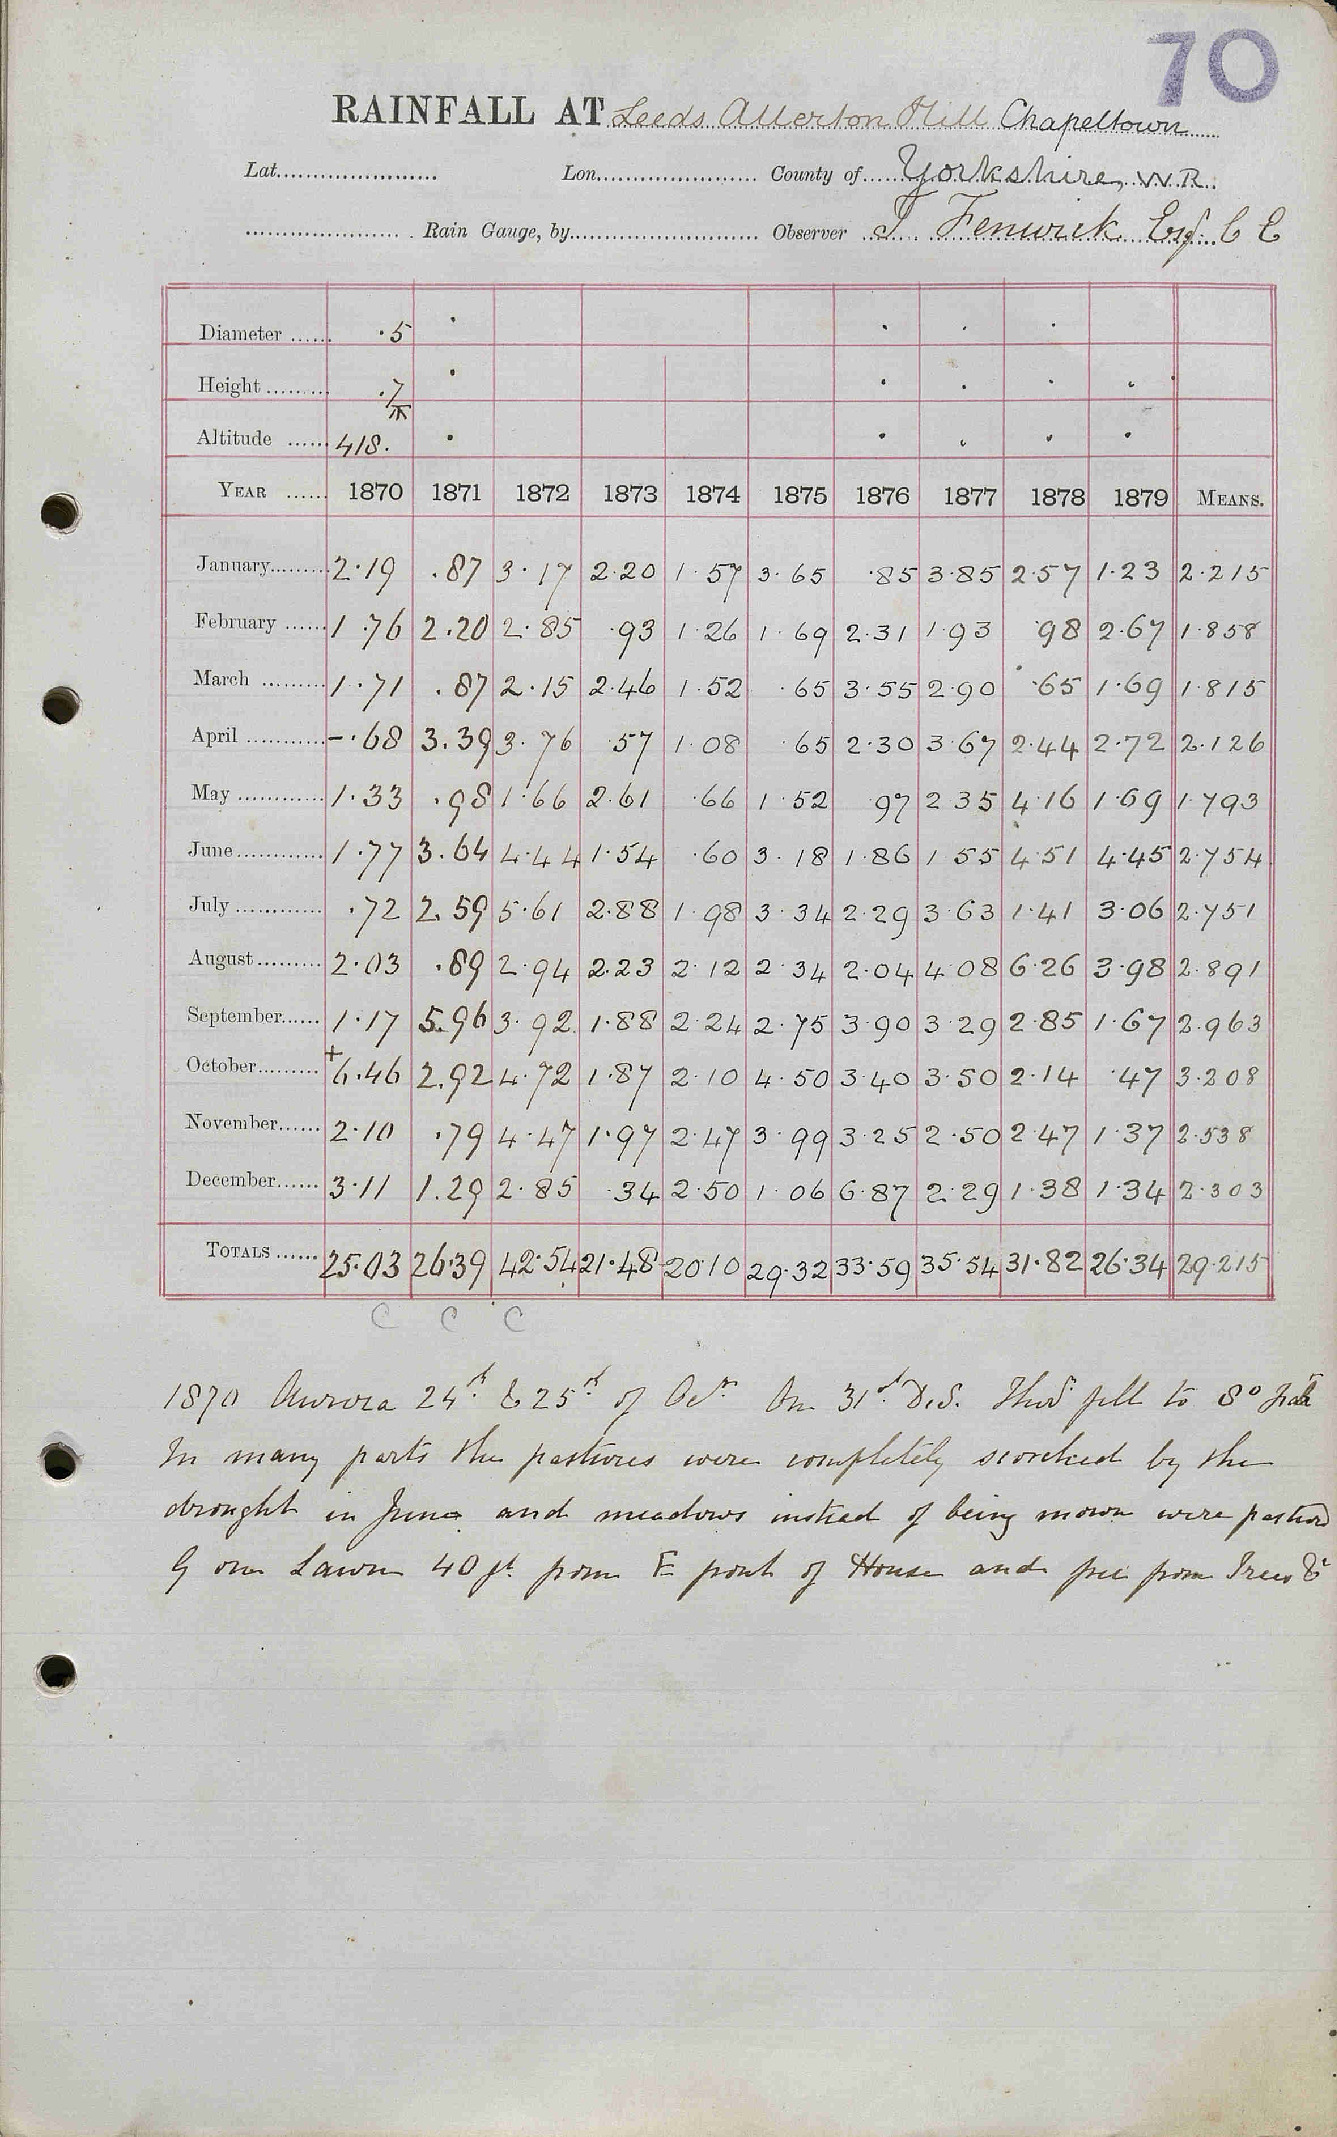 70
RAINFALL AT Leeds Allerton Hill Chapeltown
Lat. Lon. County of Yorkshire, W.R.
Rain Gauge, by Observer T Fenwick Esq. C E
Diameter ·5
Height ·7
Altitude 418.
YEAR 1870 1871 1872 1873 1874 1875 1876 1877 1878 1879 MEANS.
January 2·19 .87 3·17 2·20 1·57 3·65 ·85 3·85 2·57 1·23 2·215
February 1·76 2.20 2·85 ·93 1·26 1·69 2·31 1·93 ·98 2·67 1·858
March 1·71 .87 2·15 2·46 1·52 ·65 3·55 2·90 ·65 1·69 1·815
April -·68 3.39 3·76 ·57 1·08 ·65 2·30 3·67 2·44 2·72 2·126
May 1·33 .98 1·66 2·61 ·66 1·52 97 2 35 4·16 1·69 1·793
June 1·77 3.64 4·44 1·54 ·60 3·18 1·86 1 55 4·51 4·45 2·754
July .72 2.59 5·61 2·88 1·98 3·34 2·29 3·63 1·41 3·06 2·751
August 2·03 .89 2·94 2·23 2·12 2·34 2·04 4·08 6·26 3·98 2·891
September 1·17 5.96 3·92 1·88 2·24 2·75 3·90 3·29 2·85 1·67 2·963
October +6·46 2.92 4·72 1·87 2·10 4·50 3·40 3·50 2·14 ·47 3·208
November 2·10 .79 4·47 1·97 2·47 3·99 3·25 2·50 2·47 1·37 2·538
December 3·11 1.29 2·85 ·34 2·50 1·06 6·87 2·29 1·38 1·34 2·303
TOTALS 25·03 26·39 42·54 21·48 20 10 29·32 33·59 35·54 31·82 26·34 29·215
C C C
1870 Aurora 24th & 25th of Octr On 31st D.S. Therr fell to 8°
In many parts the pastures were completely scorched by the
drought in June and meadows instead of being mown were pastured
G on Lawn 40 ft. from E front of House and free from Trees &c